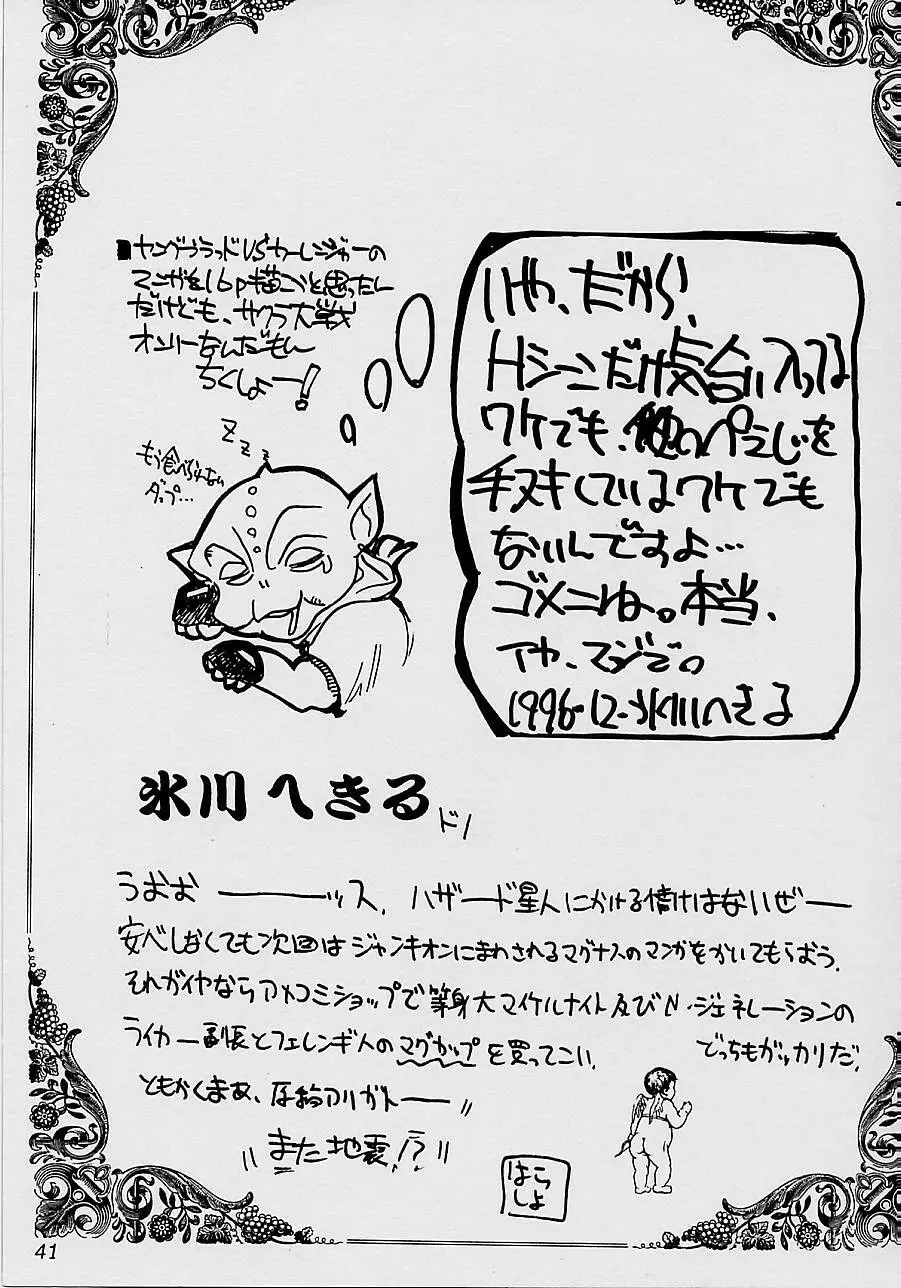 ■ヤングブラッドVSカーレンジャーの
マンガを16p描こうと思ったん
だけども、サクラ大戦
オンリーなんだもん
ちくしょー!
いや、だから、
Hシーンだけ気合い入ってる
ワケでも、他のぺえじを
手ヌキしているワケでも
ないんですよ…
ゴメンね。本当、
イヤ、マジで。
1996-12-氷川へきる
Z Z Z Z
もう食べられない
ダップ…
氷川へきる
ドノ
うおお――ッス、ハザード星人にかける情けはないぜ―
安べしなくても次回はジャンキオンにまわされるマグナスのマンガをかいてもらおう.
それがイヤならアメコミショップで等身大マイケルナイト及びN・ジェネレーションの
ライカー副長とフェレンギ人のマグカップを買ってこい. どっちもガッカリだ.
ともかくまあ、原稿アリガト――〃
〃また地震!?〃
はら
しょ
41